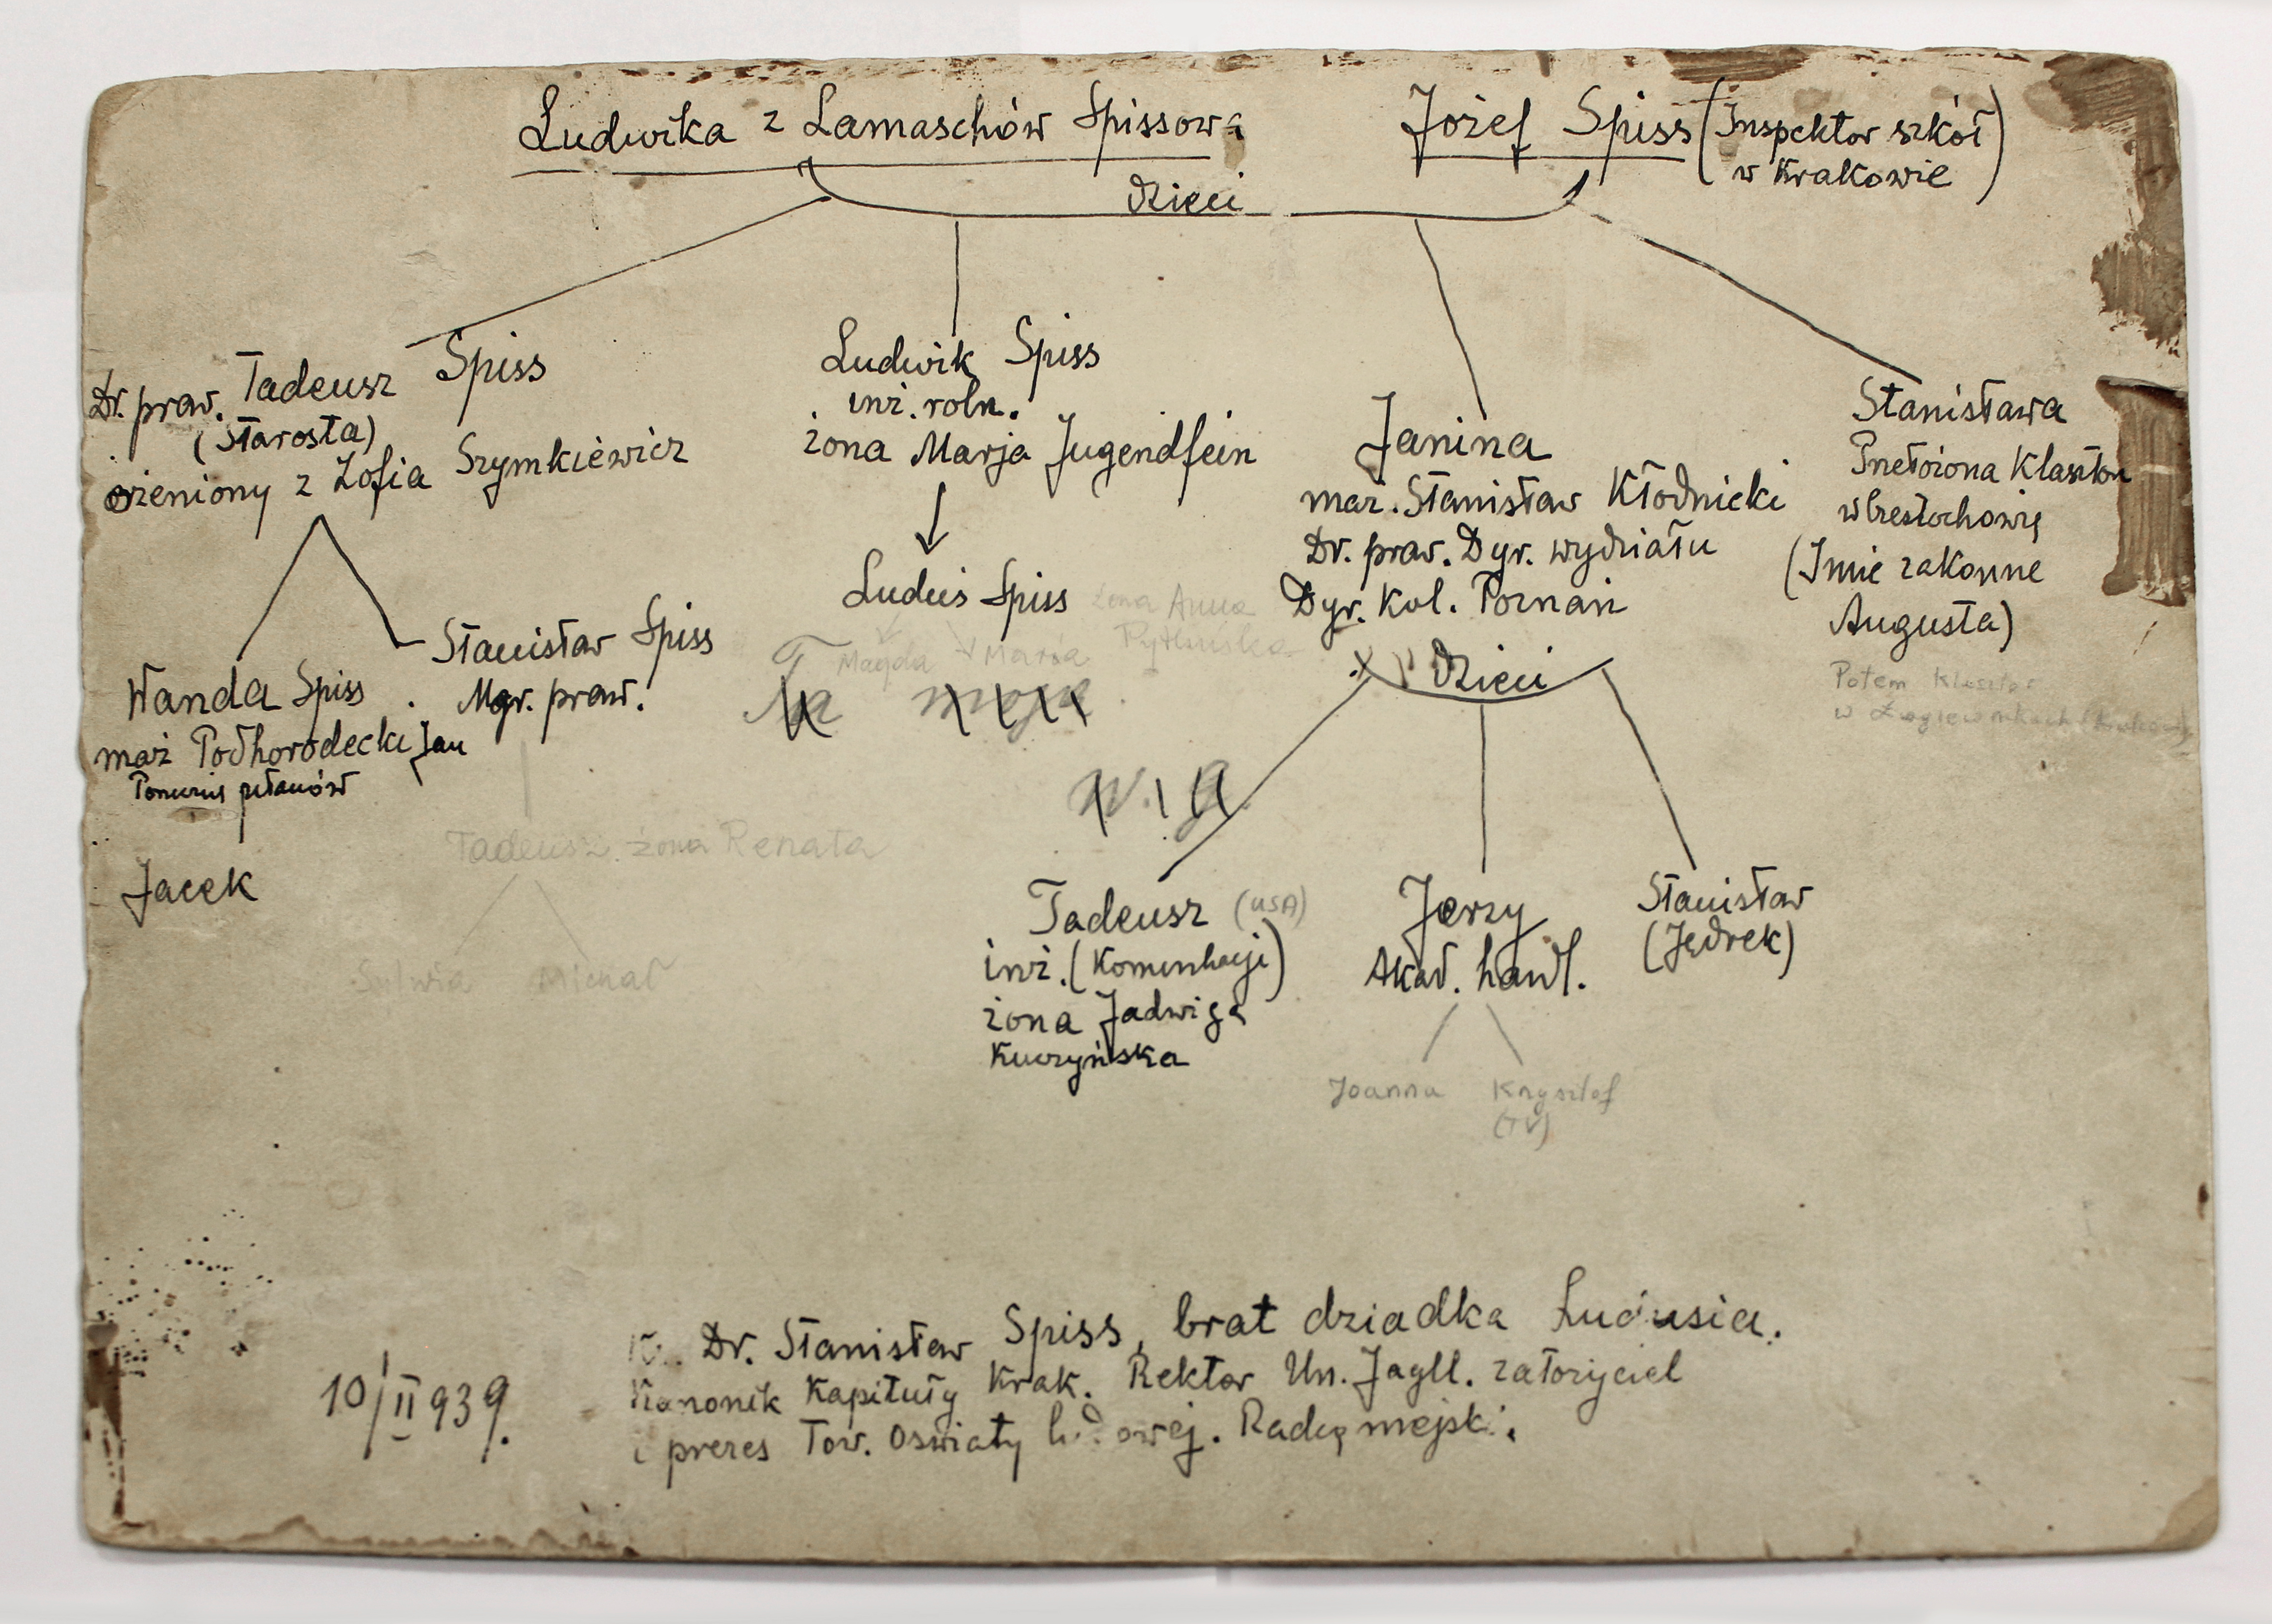 Ludwika z Lamaschów Spissowa
Józef Spiss (Inspektor szkół
w Krakowie)
dzieci
Dr. praw. Tadeusz Spiss
(Starosta)
ożeniony z Zofia Szymkiewicz
Wanda Spiss
mąż Podhorodecki Jan
Jacek
Stanisław Spiss
Mgr. praw.
Tadeusz. żona Renata
Sylwia Michał
Ludwik Spiss
inż. roln.
żona Marja Jugendfein
Luduś Spiss żona Anna
Magda Maria
Janina
mąż. Stanisław Kłodnicki
Dr. praw. Dyr. wydziału
Dyr. Kol. Poznań
dzieci
Tadeusz (USA)
inż. (Komunikacji)
żona Jadwiga
Kuczyńska
Jerzy
Akad. handl.
Joanna Krzysztof
(TV)
Stanisław
(Jędrek)
Stanisława
Przełożona Klasztoru
w Częstochowie
(Imie zakonne
Augusta)
Potem Klasztor
w Łagiewnikach
10/II 939.
Dr. Stanisław Spiss, brat dziadka Ludusia.
Kanonik Kapituły Krak. Rektor Un. Jagll. założyciel
i prezes Tow. Oswiaty ludowej. Radcą mejski.